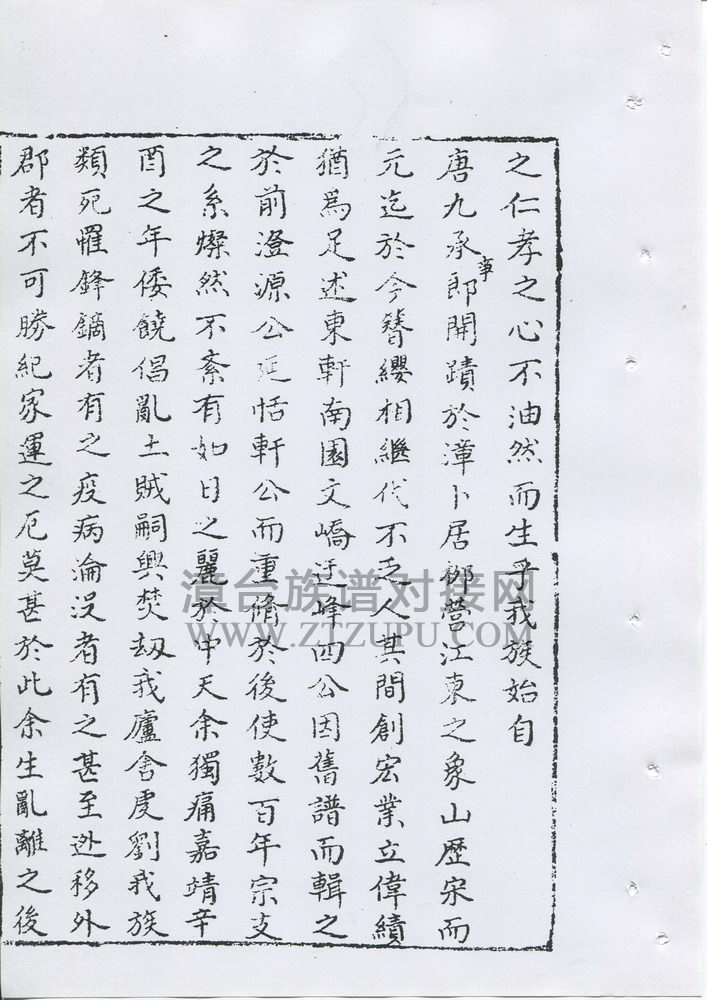 之仁孝之心不油然而生乎我族始自
唐九承事郎開蹟於漳卜居柳營江東之象山歷宋而
元迄於今簪纓相繼代不乏人其間創宏業立偉績
猶爲足述東軒南園文嶠近峰四公因舊譜而輯之
於前澄源公延恬軒公而重脩於後使數百年宗支
之系燦然不紊有如日之麗於中天余獨痛嘉靖辛
酉之年倭饒倡亂土賊嗣興焚刼我廬舍虔劉我族
類死罹鋒鏑者有之疫病淪沒者有之甚至迯移外
郡者不可勝紀家運之厄莫甚於此余生亂離之後
漳台族谱对接网
WWW.ZTZUPU.COM